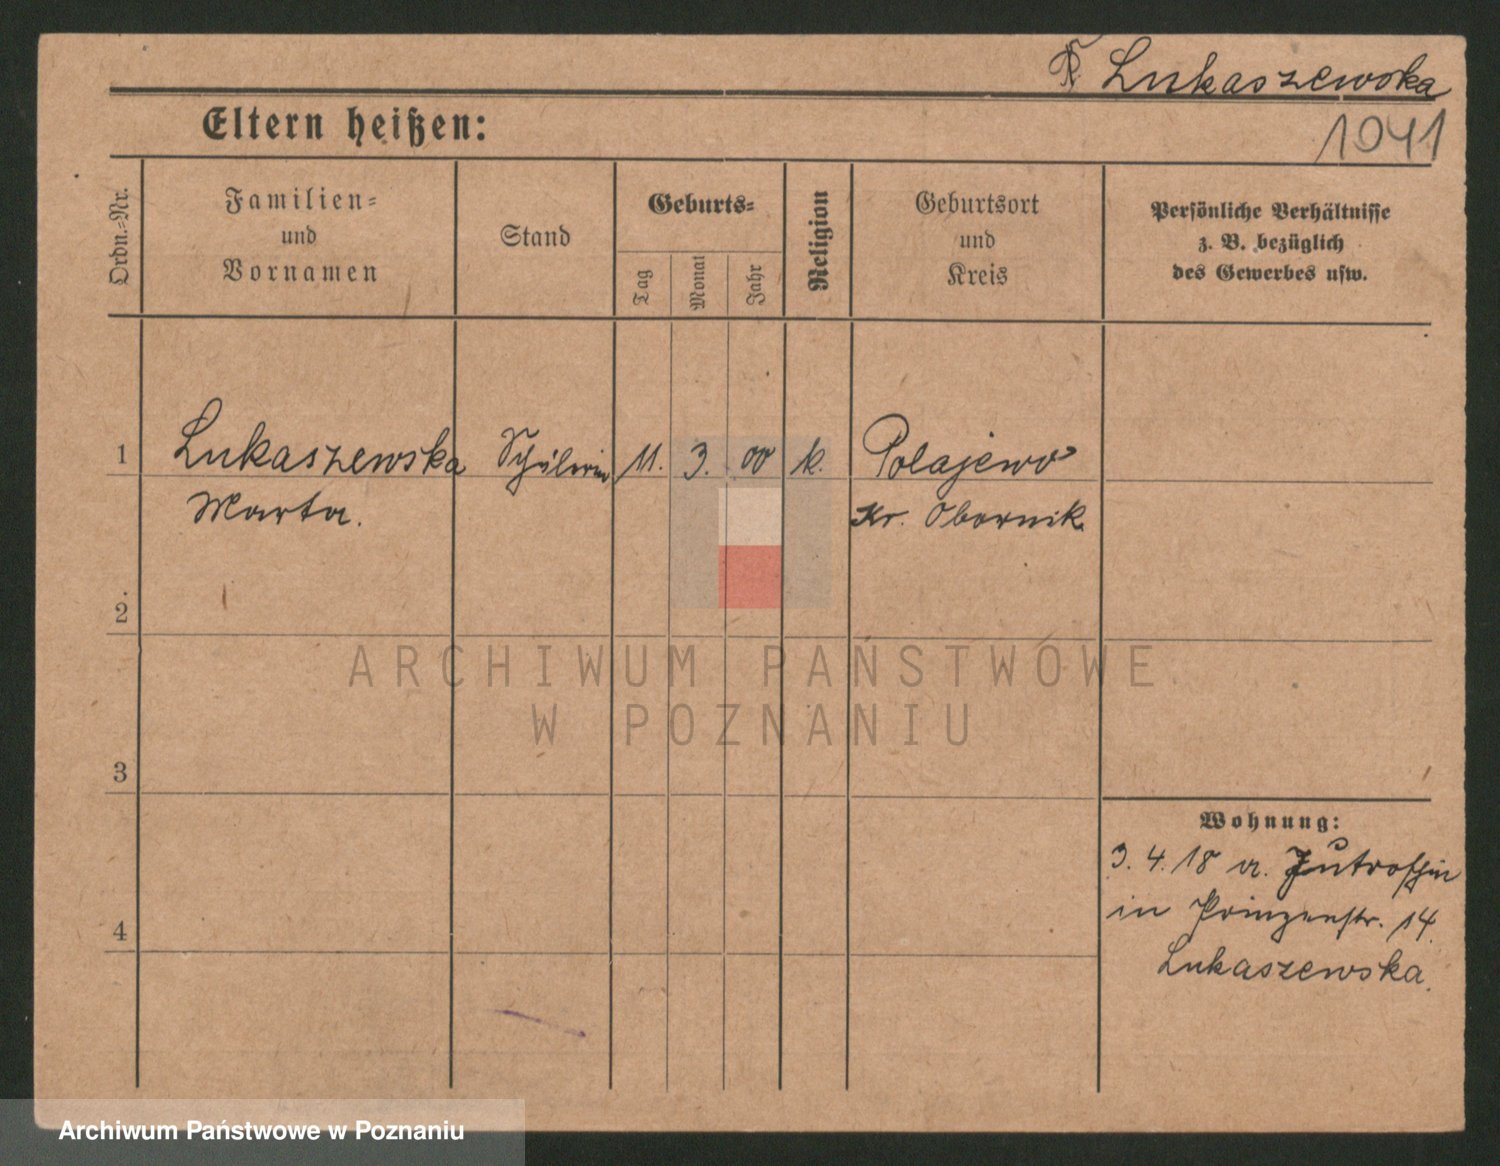 Lukaszewska
1941
Eltern heißen:
Ordn.-Nr.
Familien-
und
Vornamen
Stand
Geburts-
Tag
Monat
Jahr
Religion
Geburtsort
und
Kreis
Persönliche Verhältnisse
z. B. bezüglich
des Gewerbes usw.
1
Lukaszewska
Schülerin
11.
3.
00
k.
Polajewo
Marta.
Kr. Obornik
2
3
4
Wohnung:
3. 4. 18 a. Jutroschin
in Prinzenstr. 14.
Lukaszewska.
ARCHIWUM PAŃSTWOWE
W POZNANIU
Archiwum Państwowe w Poznaniu